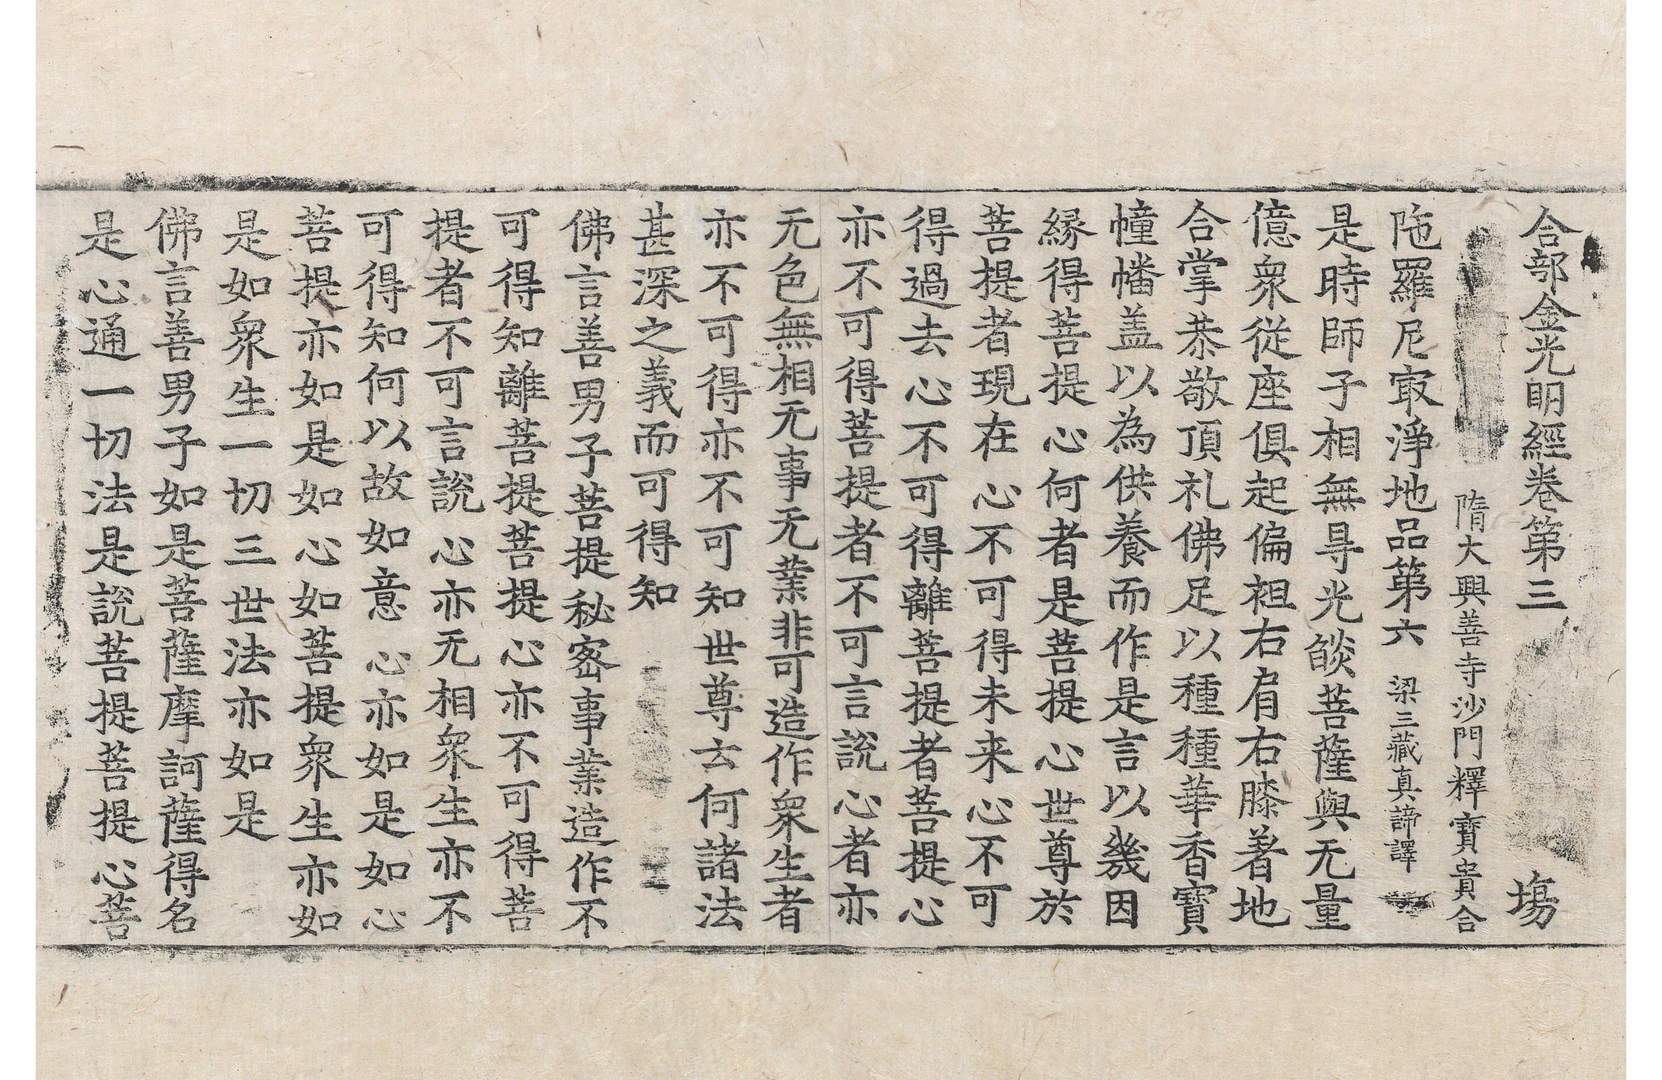 合部金光明經卷第三　塲
隋大興善寺沙門釋寶貴合
陁羅尼㝡淨地品第六　梁三藏真諦譯
是時師子相無㝵光燄菩薩與无量
億衆從座俱起偏袒右肩右膝著地
合掌恭敬頂礼佛足以種種華香寶
幢幡盖以為供養而作是言以幾因
縁得菩提心何者是菩提心世尊於
菩提者現在心不可得未来心不可
得過去心不可得離菩提者菩提心
亦不可得菩提者不可言説心者亦
无色無相无事无業非可造作衆生者
亦不可得亦不可知世尊云何諸法
甚深之義而可得知
佛言善男子菩提秘密事業造作不
可得知離菩提菩提心亦不可得菩
提者不可言説心亦无相衆生亦不
可得知何以故如意心亦如是如心
菩提亦如是如心如菩提衆生亦如
是如衆生一切三世法亦如是
佛言善男子如是菩薩摩訶薩得名
是心通一切法是説菩提菩提心菩